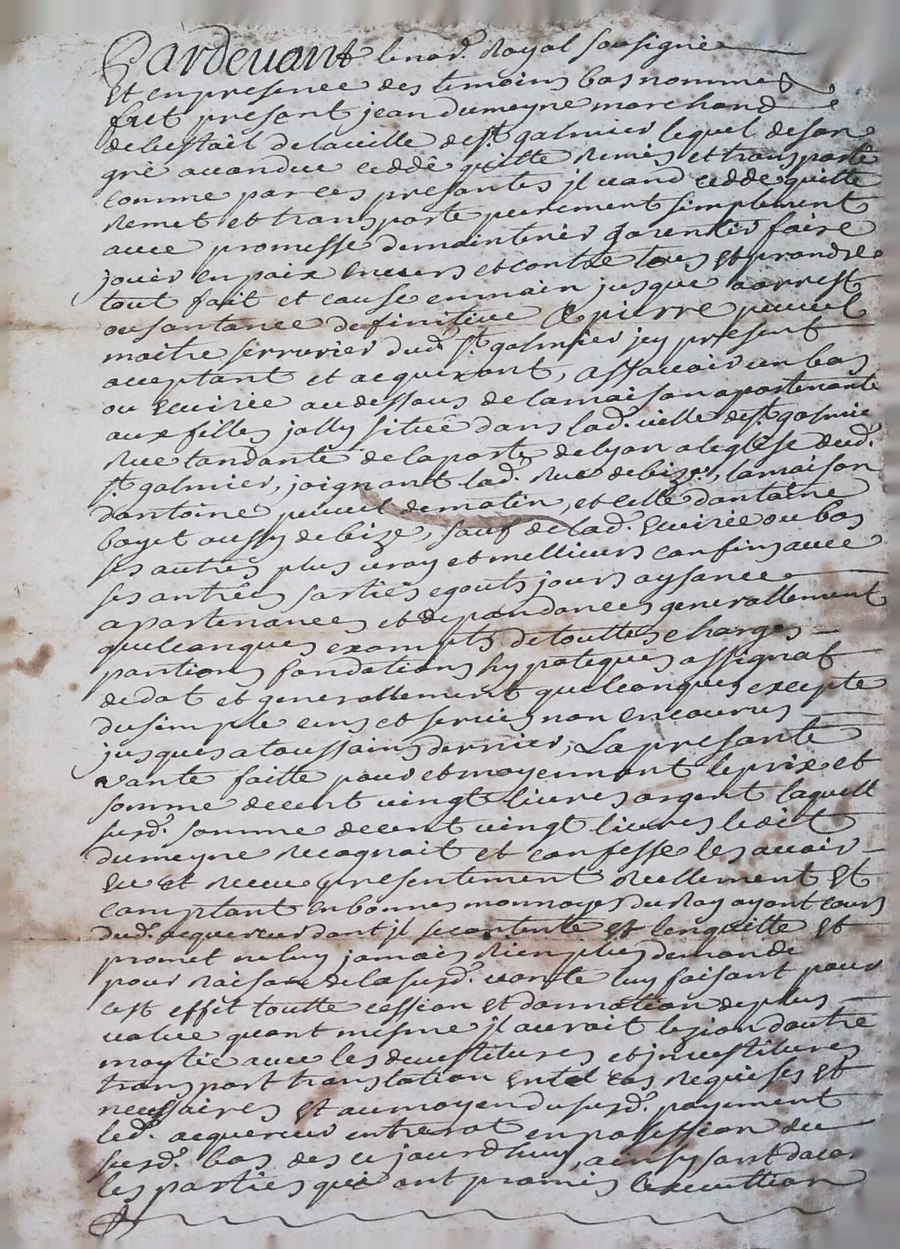 Pardevant le nore. Royal sousigné
et en presence des temoins bas nommes
fut present jean dumeyne marchand
de bestail de la ville de st. galmier lequel de son
gré a vandu ceddé quitte remis et transporté
comme par ces presantes jl vand cedde quitte
remet et transporte purement simplement
avec promesse de maintenir garentir faire
jouir en paix envers et contre tous et prandre
tout fait et cause en main jusque a arrest
ou santance definitive a pierre
maitre serrurier dud. st. galmier jcy present
acceptant et acquerant, assavoir un bas
ou ecuirie au dessous de la maison apartenante
aux filles jolly situé dans lad. ville de st. galmier
rue tandante de la porte de lyon a leglise dud.
st. galmier, joignant lad. rue de bize, la maison
dantoine de matin, et celle dantoine
bayet aussy de bize, sauf de lad. ecuirie ou bas
ses autres plus vray et meilleurs confins avec
ses antrées sorties egouts jours aysance
apartenances et depandances generallement
quelconques exampts de touttes charges
pantions fondations hypoteques assignat
de dot et generallement quelconques excepte
du simple cens et servis non encourus
jusques a toussaints dernier, La presante
vante faitte pour et moyennant le prix et
somme de cent vingt livres argent laquelle
surd. somme de cent vingt livres ledit
dumeyne recognoit et confesse les avoir
eu et receu presentement reellement et
comptant en bonnes monnoyes du Roy ayant cours
dud. acquereur dont jl se contente et len quitte et
promet ne luy jamais rien plus demande
pour raison de la surd. vante luy faisant pour
cest effet toutte cession et donnation de plus
value quant mesme jl auroit lezion d'outre
moytié avec les devestitures et jnvestitures
transport translation en tel cas requises et
necessaires et au moyen du surd. payement
led. acquereur entrerat en possession du
surd. bas des ce jourdhuy, ainsy sont dacor
les parties qui ont promis lexecuttion